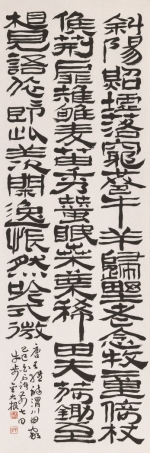 斜陽照墟落窮巷牛羊歸野老念牧童倚杖
候荊扉雉雊麥苗秀蠶眠桑葉稀田夫荷鋤至
相見語依依即此羨閑逸悵然吟式微
唐王維詩渭川田家